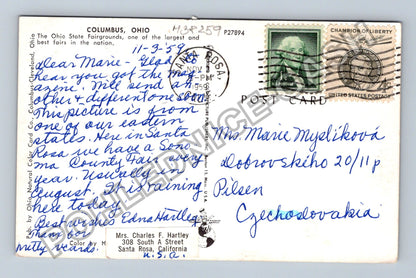 COLUMBUS, OHIO
The Ohio State Fairgrounds, one of the largest and
best fairs in the nation.
P27894
11-3-59
Dear Marie - Glad to
hear you got the mag
azine. Will send an
other & different one soon
This picture is from
one of our eastern
states. Here in Santa
Rosa we have a Sono
ma County Fair every
year. Usually in
August. It is raining
here today.
Best wishes Edna Hartley
Thanx for
pretty cards.
Mrs. Charles F. Hartley
308 South A Street
Santa Rosa, California
U.S.A.
SANTA ROSA,
NOV 3
PM
CHAMPION OF LIBERTY
UNITED STATES POSTAGE
POST CARD
Mrs. Marie Myslikova
Dobrovskeho 20/11p
Pilsen
Czechoslovakia